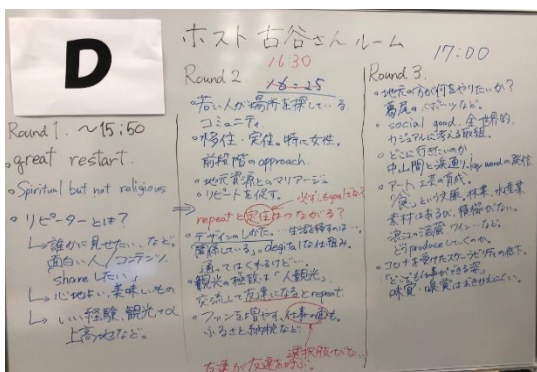 D
ホスト 古谷さん ルーム
Round 1. 〜15:50
・great restart.
・Spiritual but not religious
・リピーターとは?
↳誰かに見せたい、など。
面白い人/コンテンツ
shareしたい」
↳心地よい、美味しいもの
↳いい経験、観光+α
上高地など。
16:30
Round 2
16:25
・若い人が場所を探している
コミュニティ
・移住・定住。特に女性。
前段階のapproach.
・地元資源とのマリアージュ
リピートを促す。
必ずしもgoalでない?
repeatと定住はつながる?
・デザインのしかた。…生涯
関係している」。degitalな仕組み。
通ってはくれるけど…
・観光の極致は「人観光」
交流して友達になるとrepeat.
・ファンを増やす、仕事の面も。
ふるさと納税など
選択肢がない
友達が友達を呼ぶ。
17:00
Round 3.
・地元の方が何をやりたいか?
葛尾のスポーツなど。
・social good. 全世界的.
カジュアルに考える取組。
・どこに行きたいのか.
中山間と浜通り. key wordの発信.
・アート、工芸の育成。
「食」という文脈。林業、水産業
素材はあるが、積極がない。
浪江の酒蔵、ワイン…など。
どうproduceしていくのか。
・コロナを受けたスクーリングの低下。
「どこでも仕事ができる姿」
味覚・嗅覚はおきかえにくい。